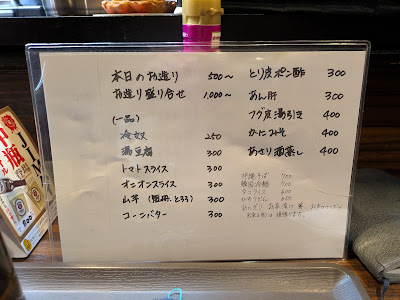 本日のお造り 500〜
お造り盛り合せ 1,000〜
(一品)
冷奴 250
湯豆腐 300
トマトスライス 300
オニオンスライス 300
山芋 (短冊、とろろ) 300
コーンバター 300
とり皮ポン酢 300
あん肝 300
フグ皮湯引き 400
かにみそ 400
あさり酒蒸し 400
沖縄そば 700
韓国冷麺 700
タコライス 600